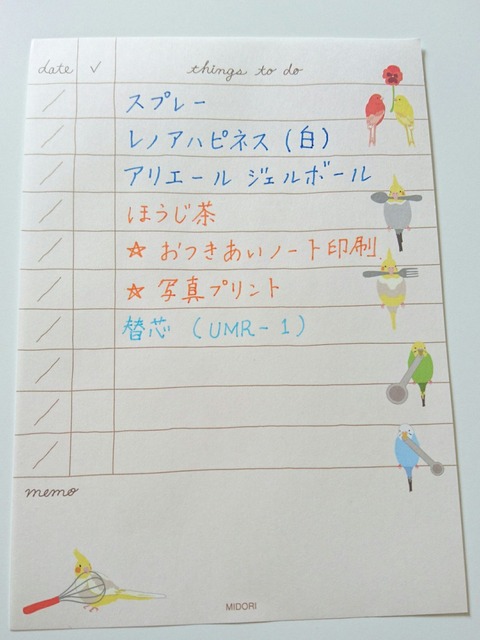 date ✓ things to do
スプレー
レノアハピネス (白)
アリエール ジェルボール
ほうじ茶
☆ おつきあいノート印刷
☆ 写真プリント
替芯 (UMR-1)
memo
MIDORI